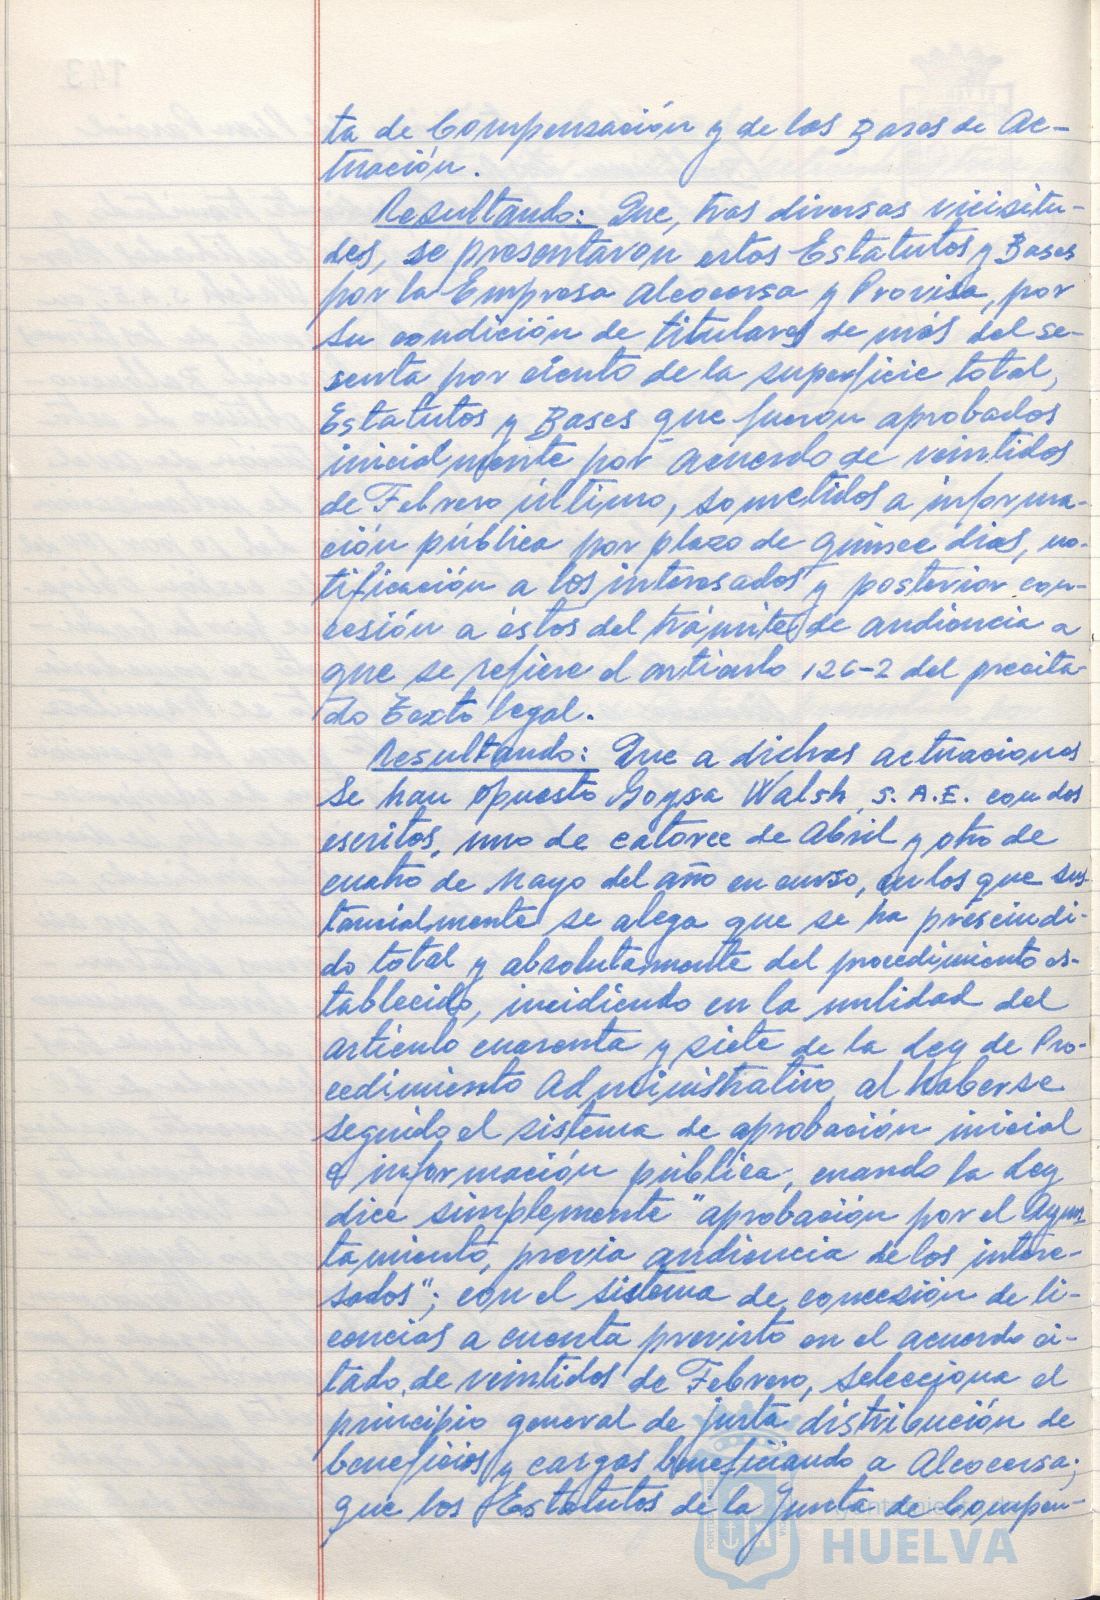 ta de Compensación y de las Bases de Ac-
tuación.
Resultando: Que, tras diversas vicisitu-
des, se presentaron estos Estatutos y Bases
por la Empresa Alcocersa y Provisa, por
su condición de titulares de más del se-
senta por ciento de la superficie total,
Estatutos y Bases que fueron aprobados
inicialmente por acuerdo de veintidos
de Febrero último, sometidos a informa-
ción pública por plazo de quince dias, no-
tificación a los interesados y posterior con-
cesión a éstos del trámite de audiencia a
que se refiere el articulo 126-2 del precita-
do Texto legal.
Resultando: Que a dichas actuaciones
se han opuesto Goysa Walsh, S.A.E. con dos
escritos, uno de catorce de Abril y otro de
cuatro de Mayo del año en curso, en los que sus-
tancialmente se alega que se ha prescindi-
do total y absolutamente del procedimiento es-
tablecido, incidiendo en la nulidad del
articulo cuarenta y siete de la Ley de Pro-
cedimiento Administrativo, al haberse
seguido el sistema de aprobación inicial
e información pública, cuando la Ley
dice simplemente "aprobación por el Ayun-
tamiento, previa audiencia de los intere-
sados"; con el sistema de concesión de li-
cencias a cuenta previsto en el acuerdo ci-
tado, de veintidos de Febrero, selecciona el
principio general de justa distribución de
beneficios y cargas beneficiando a Alcocersa;
que los Estatutos de la Junta de Compen-
Ayuntamiento de
HUELVA
143